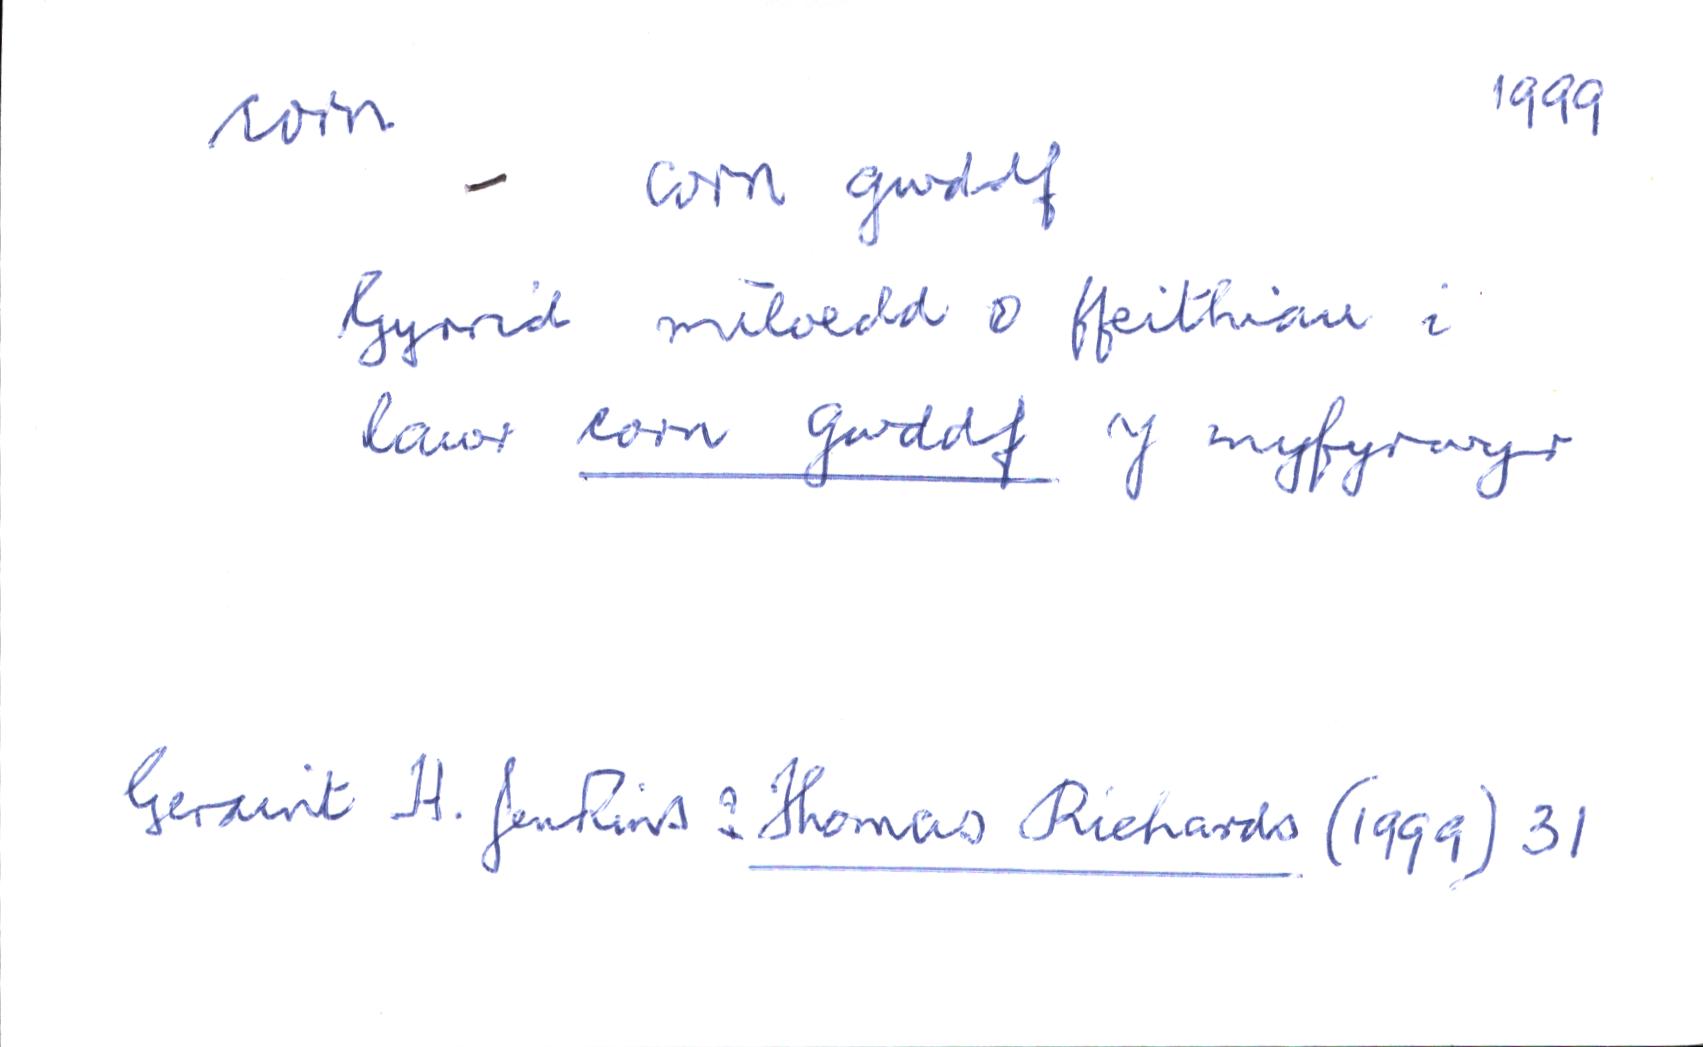 corn 1999
- corn gwddf
Gyrrid miloedd o ffeithiau i
lawr corn gwddf y myfyrwyr
Geraint H. Jenkins : Thomas Richards (1999) 31